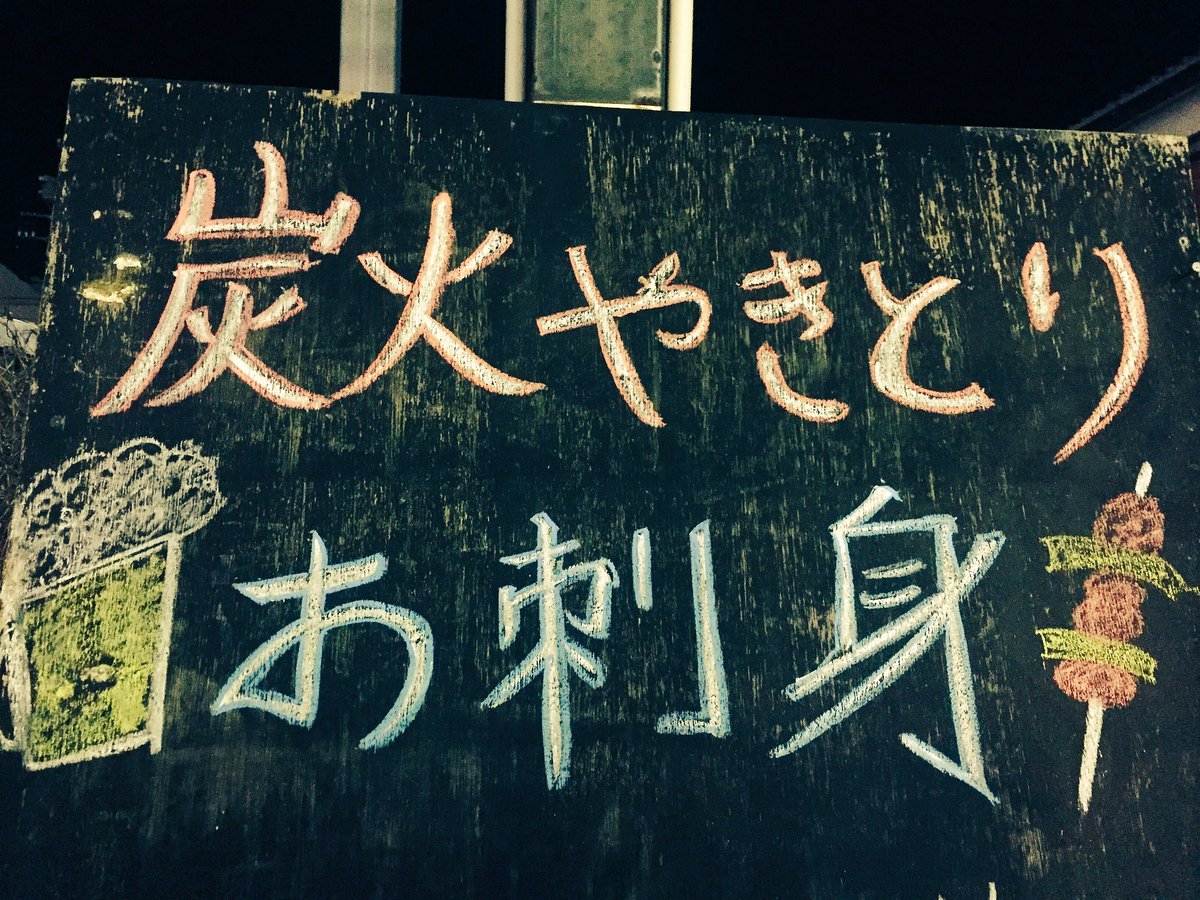 炭火やきとり
お刺身